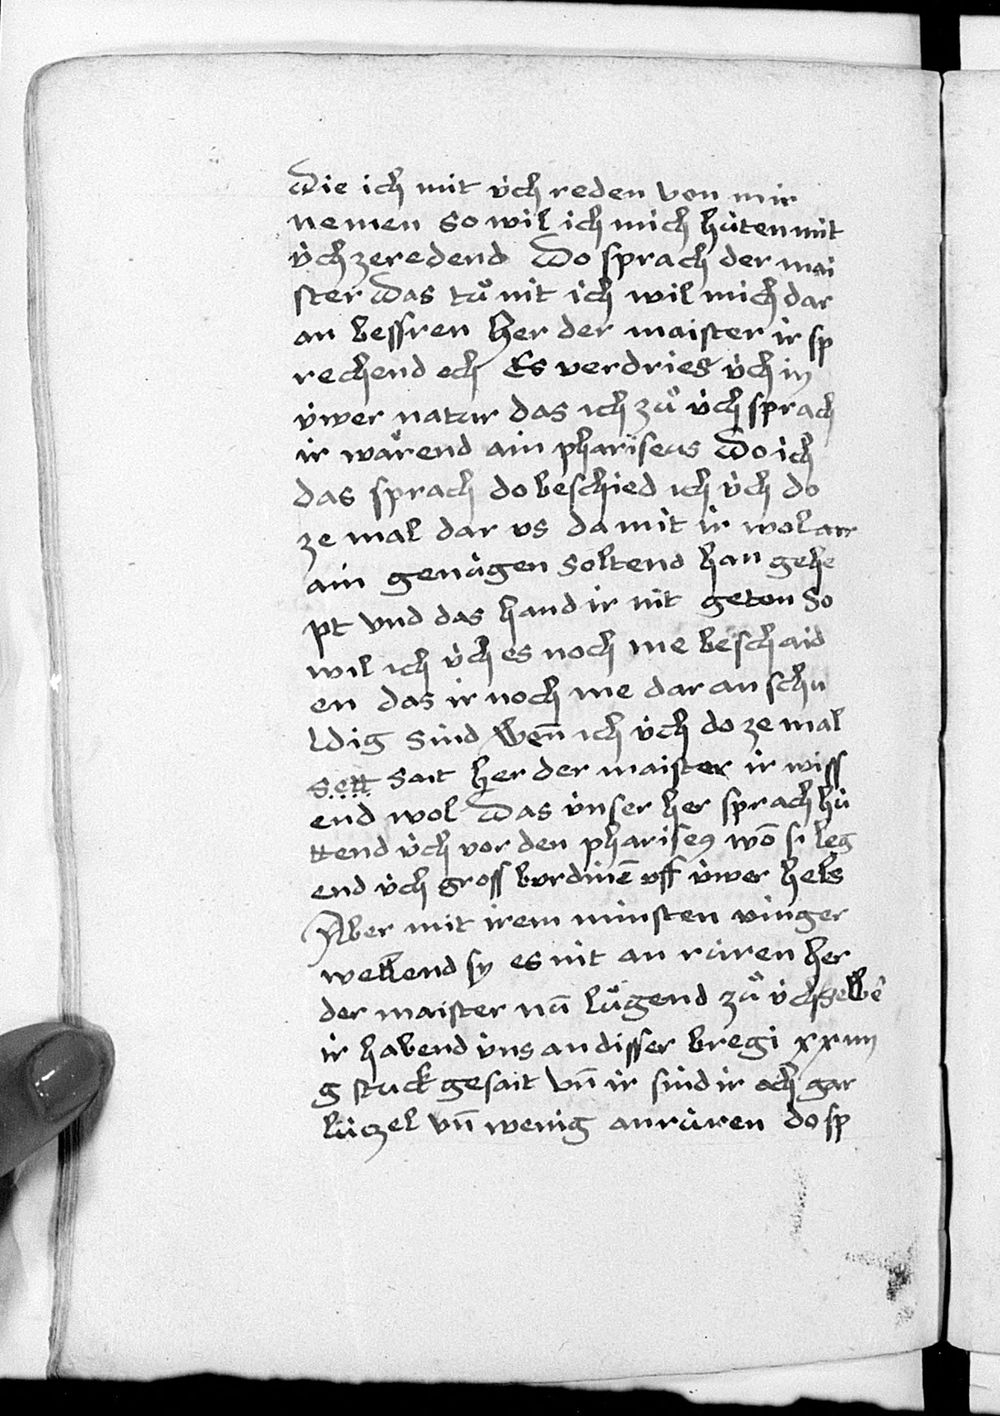 Die ich mit u̇ch reden von mir
nemen so wil ich mich hu̇ten mit
u̇ch zeredend Do sprach der mai
ster Das tuͦ nit ich wil mich dar
an bessren Her der maister ir sp
rechend och Es verdries u̇ch in
u̇wer natur das ich zuͦ u̇ch sprach
ir waͤrend ain phariseus Do ich
das sprach do beschied ich u̇ch do
ze mal dar us da mit ir wol an
ain genu̇gen soltend han gehe
pt vnd das hand ir nit geton So
wil ich u̇ch es noch me beschaid
en das ir noch me dar an schu
ldig sind Wen̄ ich u̇ch do ze mal
sett sait her der maister ir wiss
end wol Das u̇nser her sprach hu̇
ttend u̇ch vor den phariseꝰ wō si leg
end u̇ch gross burdinē uff u̇wer hels
Aber mit irem minsten vinger
wellend sy es nit an ru̇ren her
der maister nū luͦgend zuͦ u̇ch selbē
ir habend u̇ns an disser bregi xxiiii
g stuck gesait vn̄ ir sind ir och gar
lu̇czel vn̄ wenig anru̇ren do sp